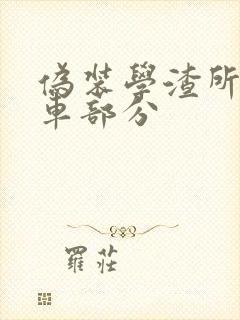 偽裝學渣所
車部分
羅莊